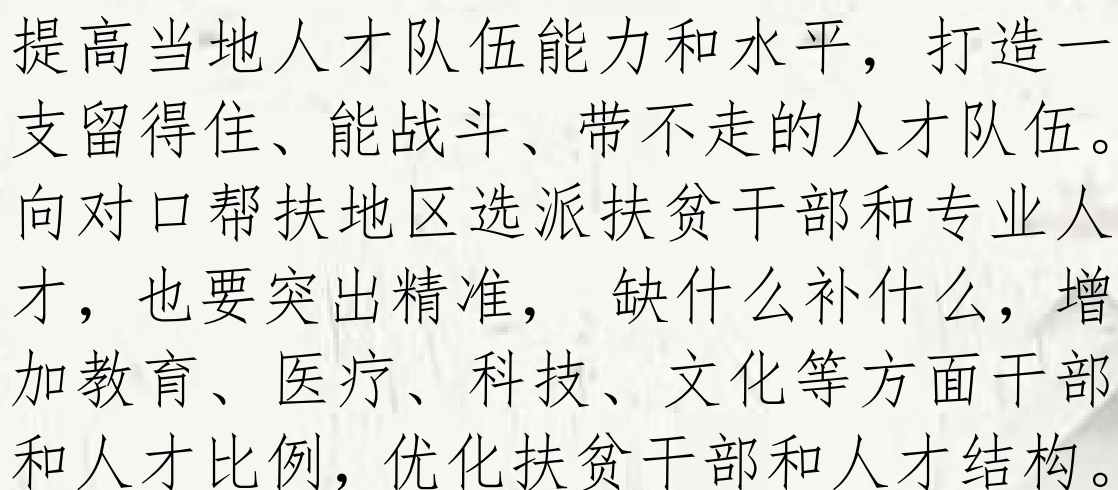 提高当地人才队伍能力和水平，打造一
支留得住、能战斗、带不走的人才队伍。
向对口帮扶地区选派扶贫干部和专业人
才，也要突出精准， 缺什么补什么，增
加教育、医疗、科技、文化等方面干部
和人才比例，优化扶贫干部和人才结构。